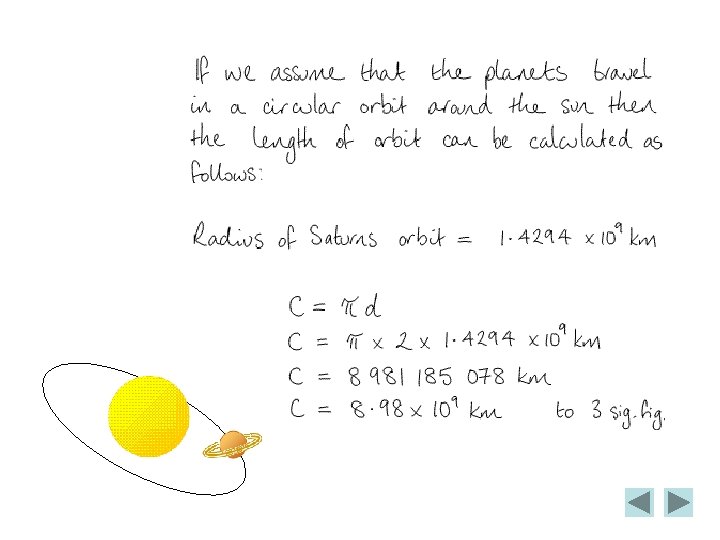 If we assume that the planets travel
in a circular orbit around the sun then
the length of orbit can be calculated as
follows:
Radius of Saturns orbit = 1.4294 x 10⁹ km
C = πd
C = π x 2 x 1.4294 x 10⁹ km
C = 8 981 185 078 km
C = 8.98 x 10⁹ km to 3 sig. fig.